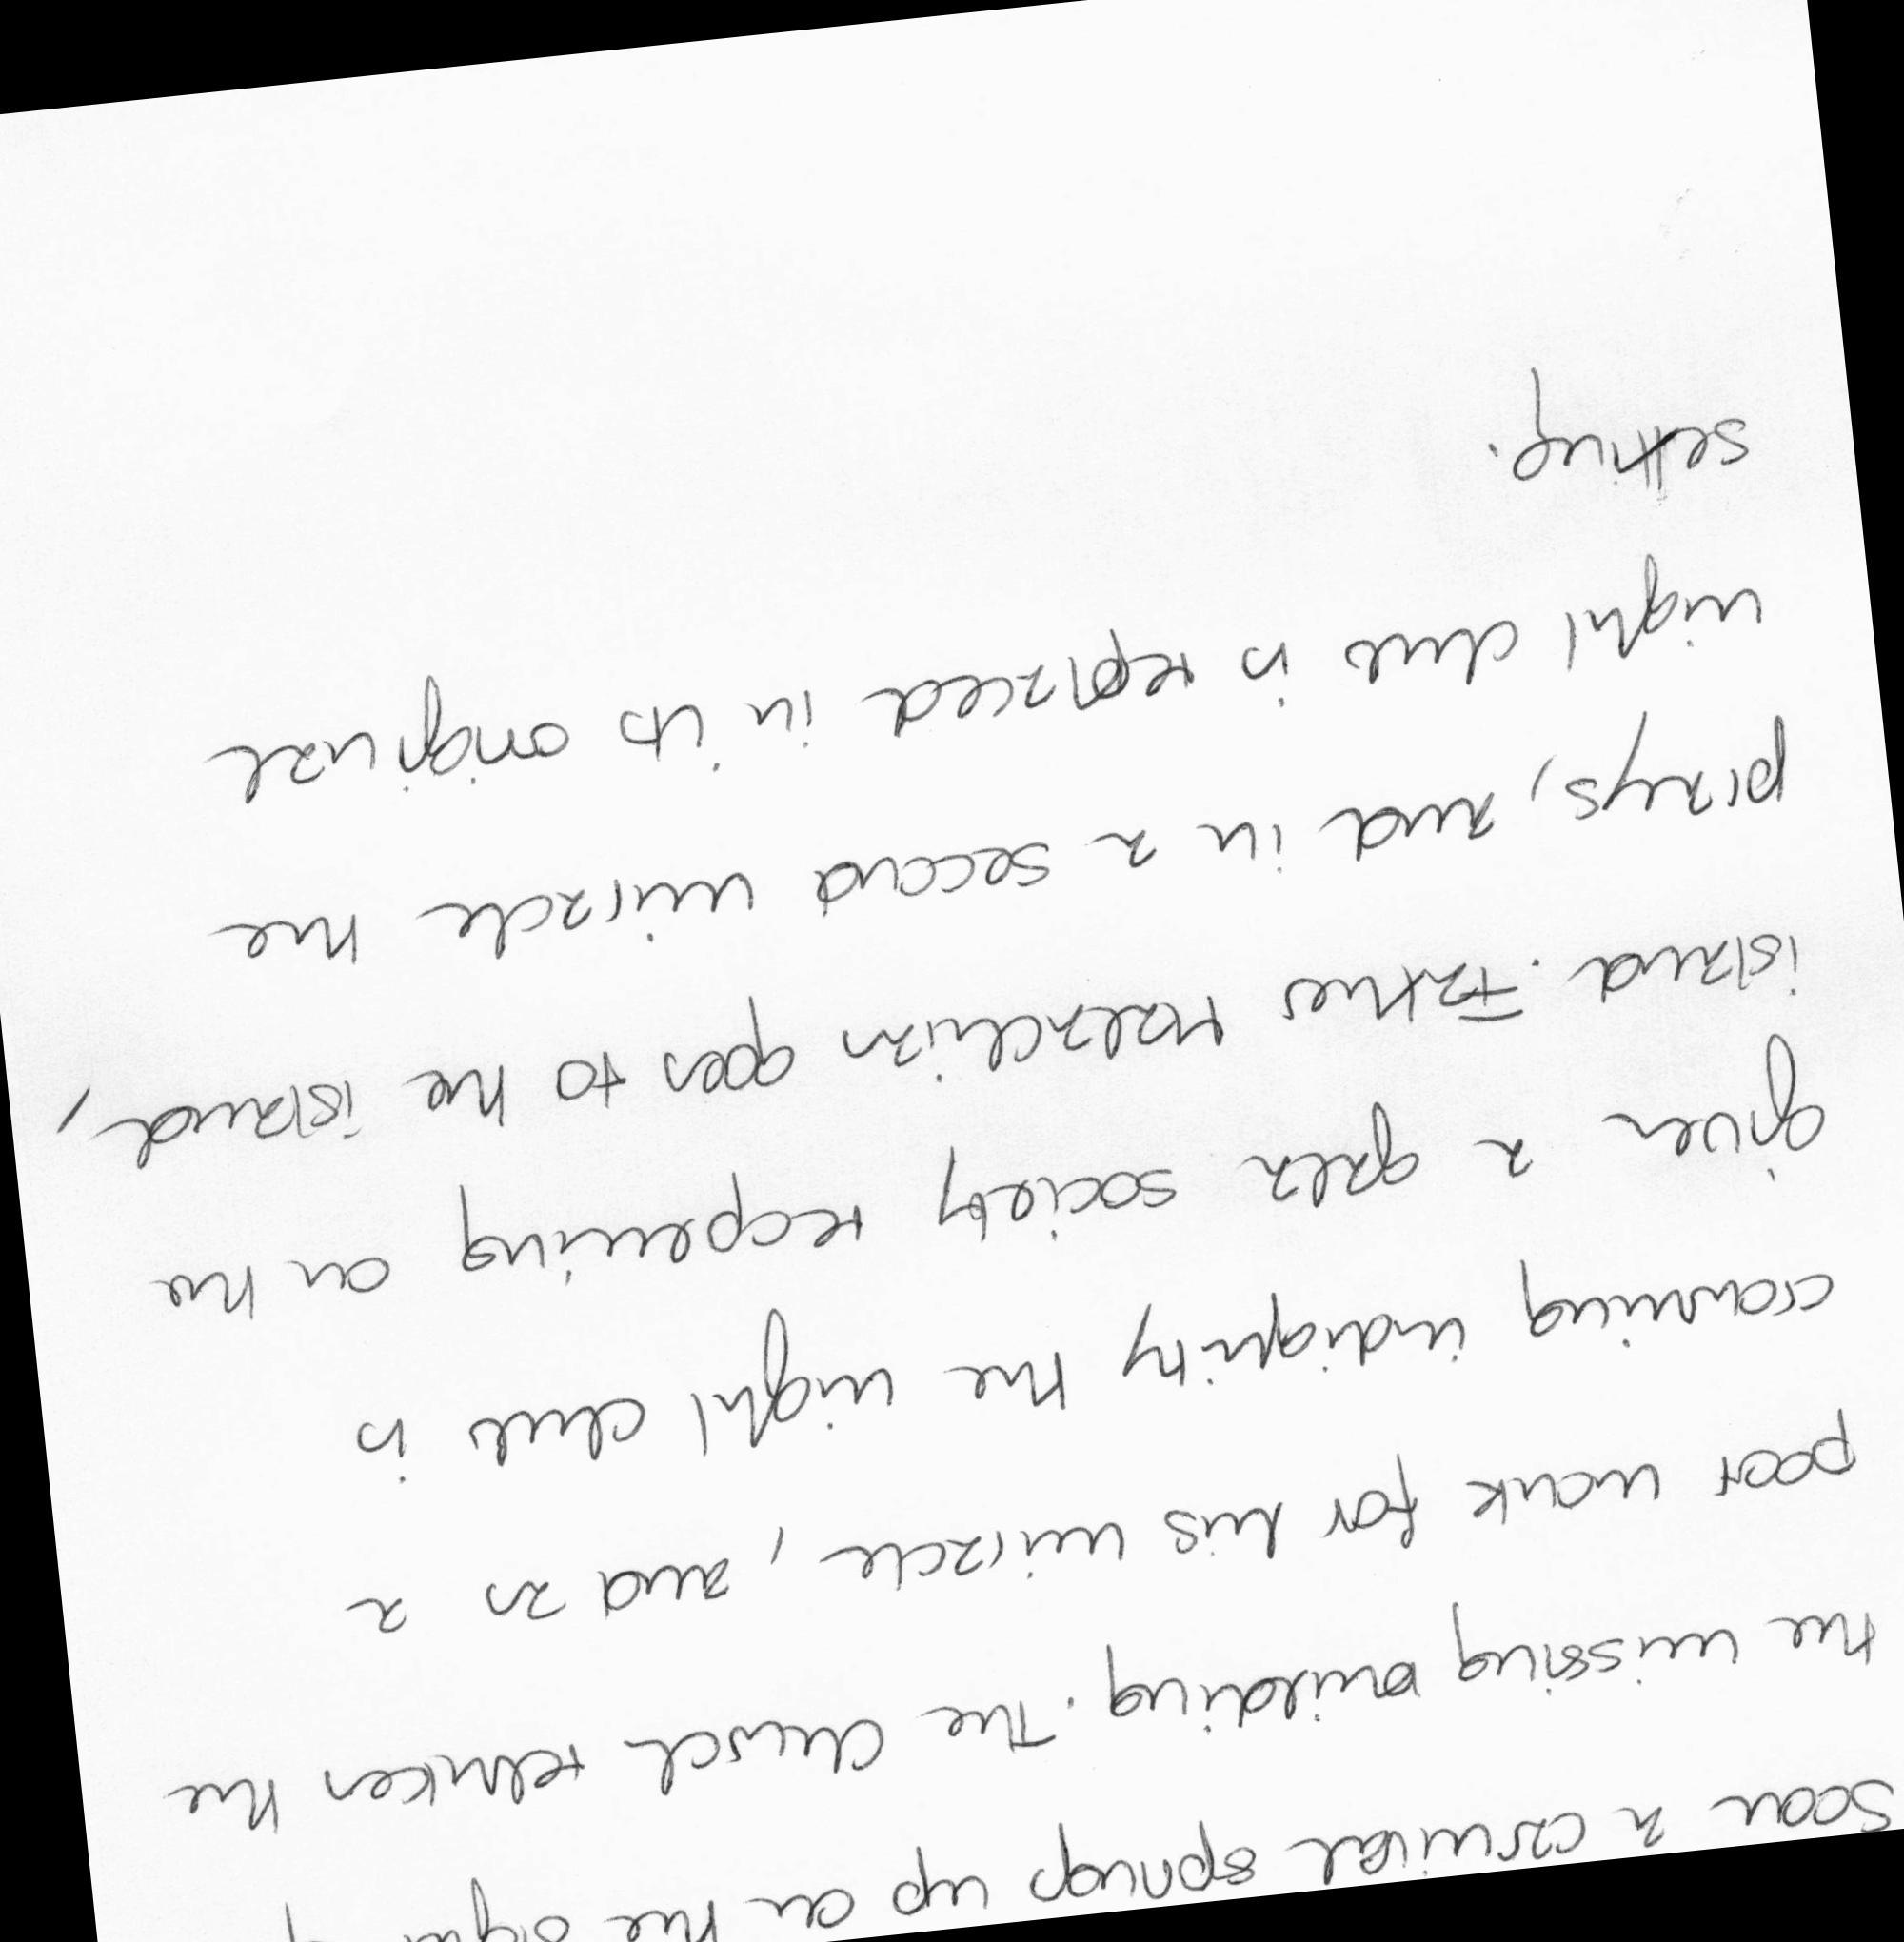 Soon a carnival springs up on the sight of
the missing building. The church rebukes the
poor monk for his miracle, and as a
crowning indignity the night club is
given a gala society reopening on the
island. Father Malachian goes to the island,
prays, and in a second miracle the
night club is replaced in its original
setting.